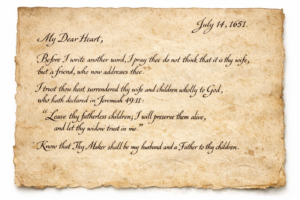 July 14, 1651.
My Dear Heart,
Before I write another word, I pray thee do not think that it is thy wife,
but a friend, who now addresses thee.
I trust thou hast surrendered thy wife and children wholly to God,
who hath declared in Jeremiah 49:11:
“Leave thy fatherless children; I will preserve them alive,
and let thy widow trust in me.”
Know that Thy Maker shall be my husband and a Father to thy children.